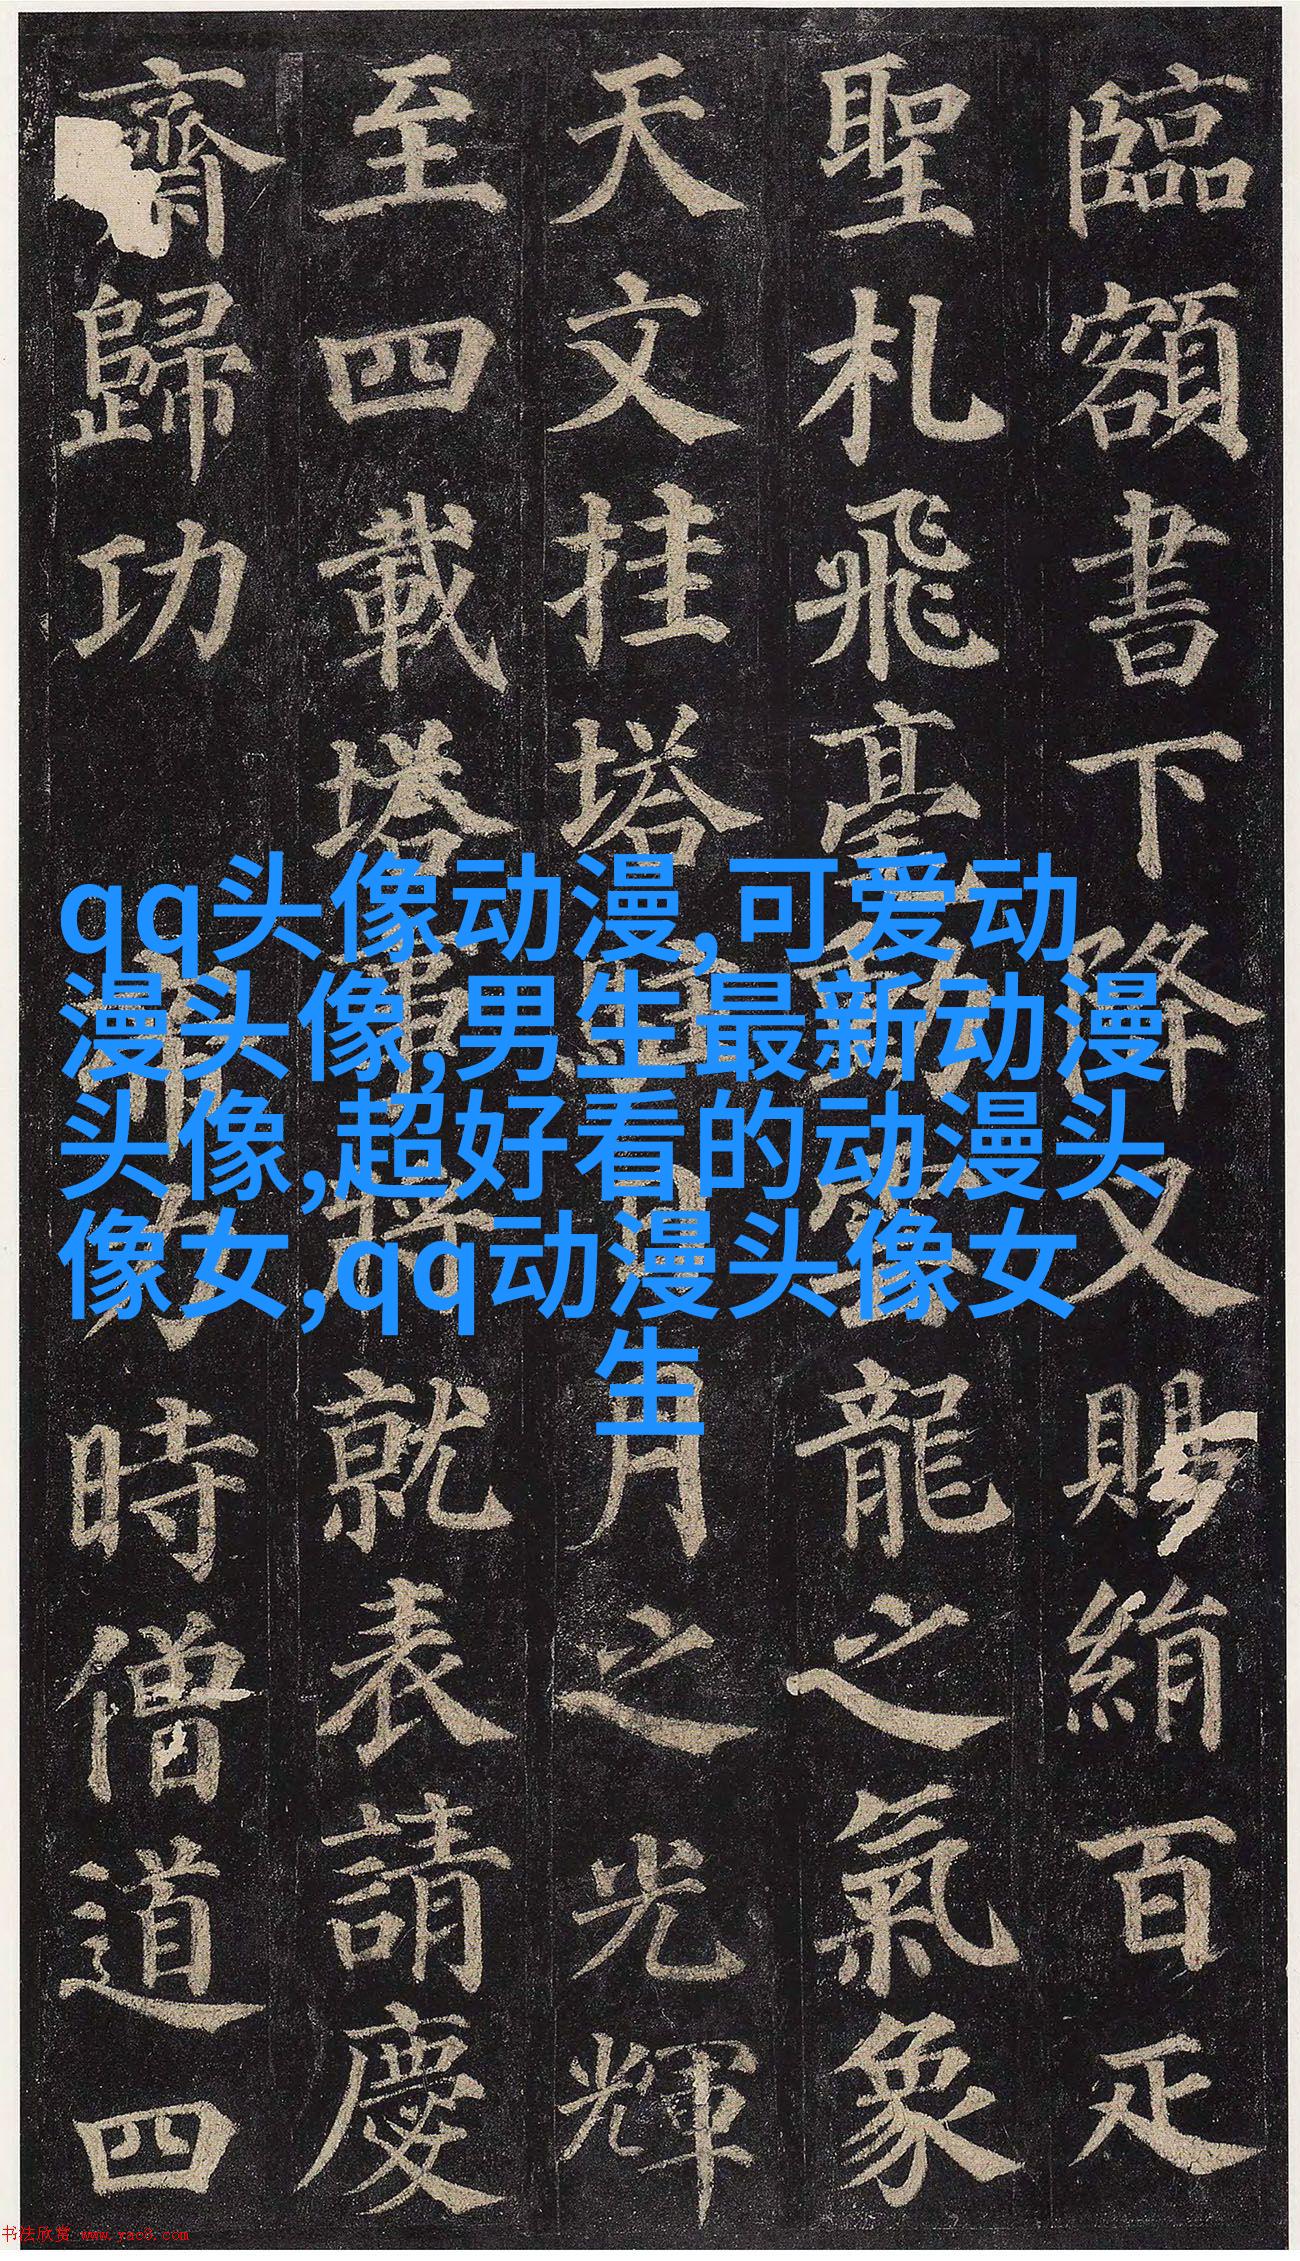 臨額書下降又賜絹百疋
聖札飛毫動雲龍之氣象
天文挂塔駐日月之光輝
至四載塔事將就表請慶
齋歸功 帝力時僧道四
qq头像动漫,可爱动
漫头像,男生最新动漫
头像,超好看的动漫头
像女,qq动漫头像女
生
书法欣赏 www.yac8.com